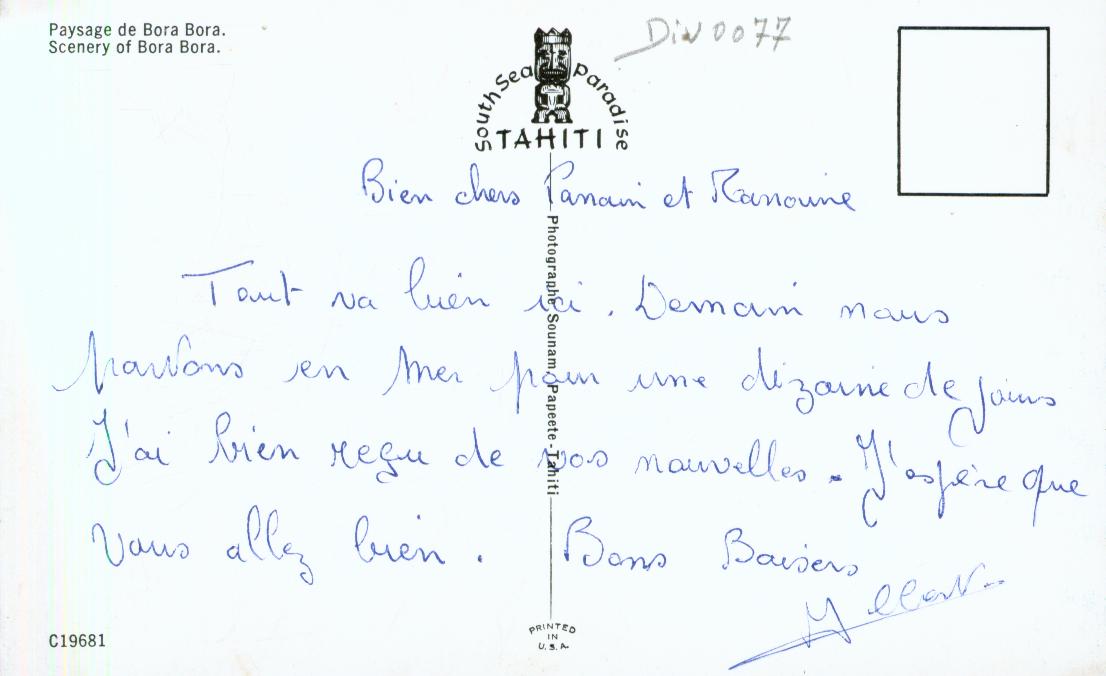 Paysage de Bora Bora.
Scenery of Bora Bora.
Div 0077
South Sea Paradise
TAHITI
Bien chers Parrain et Marraine
Tout va bien ici. Demain nous
partons en mer pour une dizaine de jours
J'ai bien reçu de vos nouvelles. J'espère que
vous allez bien. Bons Baisers
Photographe Sounam, Papeete-Tahiti
C19681
PRINTED
IN
U.S.A.